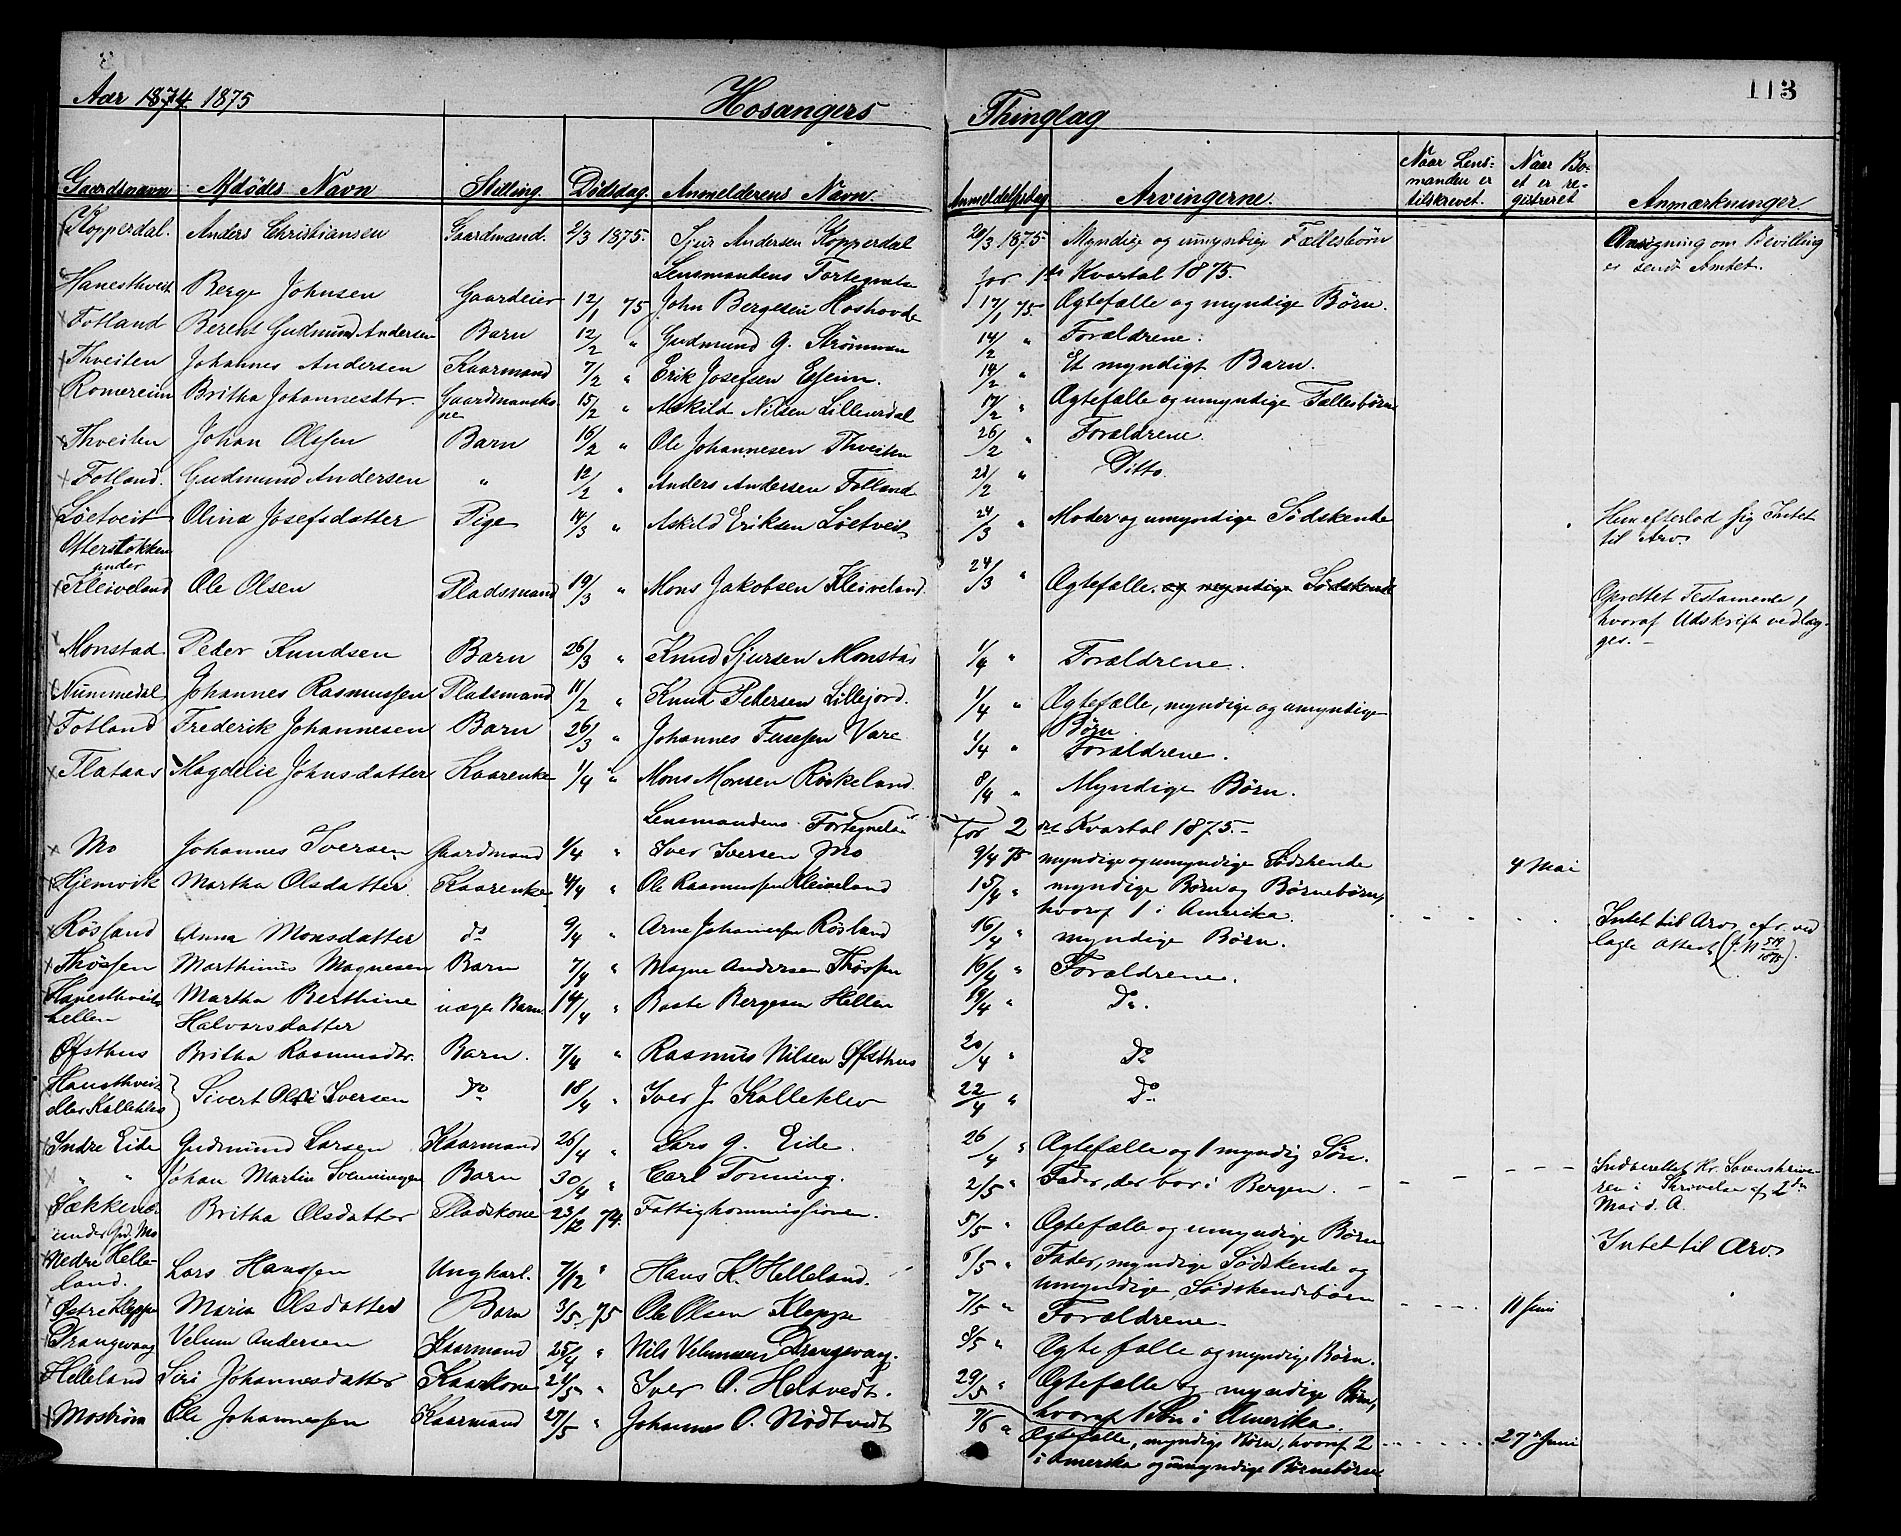 113
Aar 1874 1875 Hosangers Thinglag
Gaardsnavn Afdødes Navn Stilling. Dødsdag. Anmelderens Navn. Anmeldelsesdag Arvingerne. Naar Lens-manden er tilskrevet. Naar Bo-et er re-gistreret Anmærkninger.
Kopperdal. Anders Christiansen Gaardmand. 2/3 1875. Sjur Andersen Kopperdal 20/3 1875. Myndige og umyndige Fællesbørn Ansøgning om Bevilling
er sendt Amtet.
Lensmandens Fortegnelse for 1ste Kvartal 1875.
Hanesthveit Berge Johnsen Gaardeier 12/1 75 John Bergesen Hoshovde 17/1 75. Ægtefælle og myndige Børn.
Fotland Berent Gudmund Andersen Barn 12/2 " Gudmund G. Strømmen 14/2 " Forældrene.
Thveiten Johannes Andersen Kaarmand 7/2 " Erik Josefsen 14/2 " Et myndigt Barn.
Romereim Britha Johannesdtr. Gaardmandsko-ne 15/2 " Askild Nilsen Lilleurdal 17/2 " Ægtefælle og umyndige Fællesbørn
Thveiten Johan Olssen Barn 16/2 " Ole Johannesen Thveiten 26/2 " Forældrene.
Fotland. Gudmund Andersen " 12/2 " Anders Andersen Fotland 28/2 " Ditto.
Løtveit Olina Josefsdatter Pige 14/3 " Askild Eriksen Løtveit 24/3 " Moder og umyndige Sødskende Hun efterlod sig Intet
til Arv.
Otterstokken
under
Kleiveland Ole Olsen Pladsmand 19/3 " Mons Jakobsen Kleiveland. 24/3 " Ægtefælle. og myndige Sødskende Oprettet Testamente,
hvoraf Udskrift vedlæg-
ges.
Monstad Peder Knudsen Barn 26/3 " Knud Sjursen Monstad 1/4 " Forældrene.
Nummedal Johannes Rasmussen Pladsmand 11/2 " Knut Pedersen Lillejord. 1/4 " Ægtefælle, myndige og umyndige
Børn
Fotland Frederik Johannesen Barn 26/3 " Johannes Vare 1/4 " Forældrene.
Flataas Magdelie Johnsdatter Kaarenke 1/4 " Mons Monsen Røskeland. 8/4 " Myndige Børn.
Lensmandens Fortegnelse for 2det Kvartal 1875.
Mo Johannes Iversen Gaardmand 1/4 " Iver Iversen Mo 9/4 75 myndige og umyndige Sødskende 4 Mai
Hjemvik Martha Olsdatter Kaarenke 4/4 " Ole Rasmussen Kleiveland 15/4 " myndige Børn og Børnebørn,
hvoraf 1 i Amerika.
Røsland Anna Monsdatter do 9/4 " Arne Johannessen Røsland 16/4 " myndige Børn. Intet til Arv, cfr. ved
lagte Attest
Thøssen Marthinus Magnesen Barn 7/4 " Magne Andersen Thøssen 16/4 " Forældrene.
Hanesthveit
hellen Martha Berthine
Halvorsdatter uægte Barn. 14/4 " Baste Bergesen Hellen 19/4 " Do.
Øfsthus Britha Rasmusdtr. Barn. 7/4 " Rasmus Nilsen Øfsthus 20/4 " Do
Hanesthveit
eller Kalleklev Sivert Iversen do 18/4 " Iver J. Kalleklev 22/4 " Do.
Indre Eide Gudmund Larsen Kaarmand 26/4 " Lars G. Eide. 26/4 " Ægtefælle og 1 myndig Søn.
" " Johan Martin Svenningsen Barn 30/4 " Carl Tonning. 2/5 " Fader, der bor i Bergen. Indberettet Hr. Sorenskrive-
ren i Skrivelse af 2den
Mai d. A.
Sækken
under Gd. Mo Britha Olsdatter Pladskone 23/12 74. Fattigkommissionen. 5/5 " Ægtefælle og umyndige Børn Intet til Arv
Nedre Helle-
land. Lars Hanssen Ungkarl. 7/12 " Hans K. Helleland. 6/5 " Fader, myndige Sødskende og
umyndige Sødskendebørn
Østre Kleppe Maria Olsdatter Barn 3/5 75 Ole Olsen Kleppe 7/5 " Forældrene. 11 Juni
Drangevaag Velum Andersen Kaarmand 25/4 " Nils Velumsen Drangevaag. 8/5 " Ægtefælle og myndige Børn.
Helleland Siri Johannesdatter Kaarkone 24/5 " Iver O. Heltvedt. 29/5 " Ægtefælle og myndige Børn,
hvoraf 1 Søn i Amerika.
Mostrøm Ole Johannessen Kaarmand 27/5 " Johannes O. Nødtvedt 7/6 " Ægtefælle, myndige Børn, hvoraf 2 27de Juni
i Amerika og umyndige Børnebørn